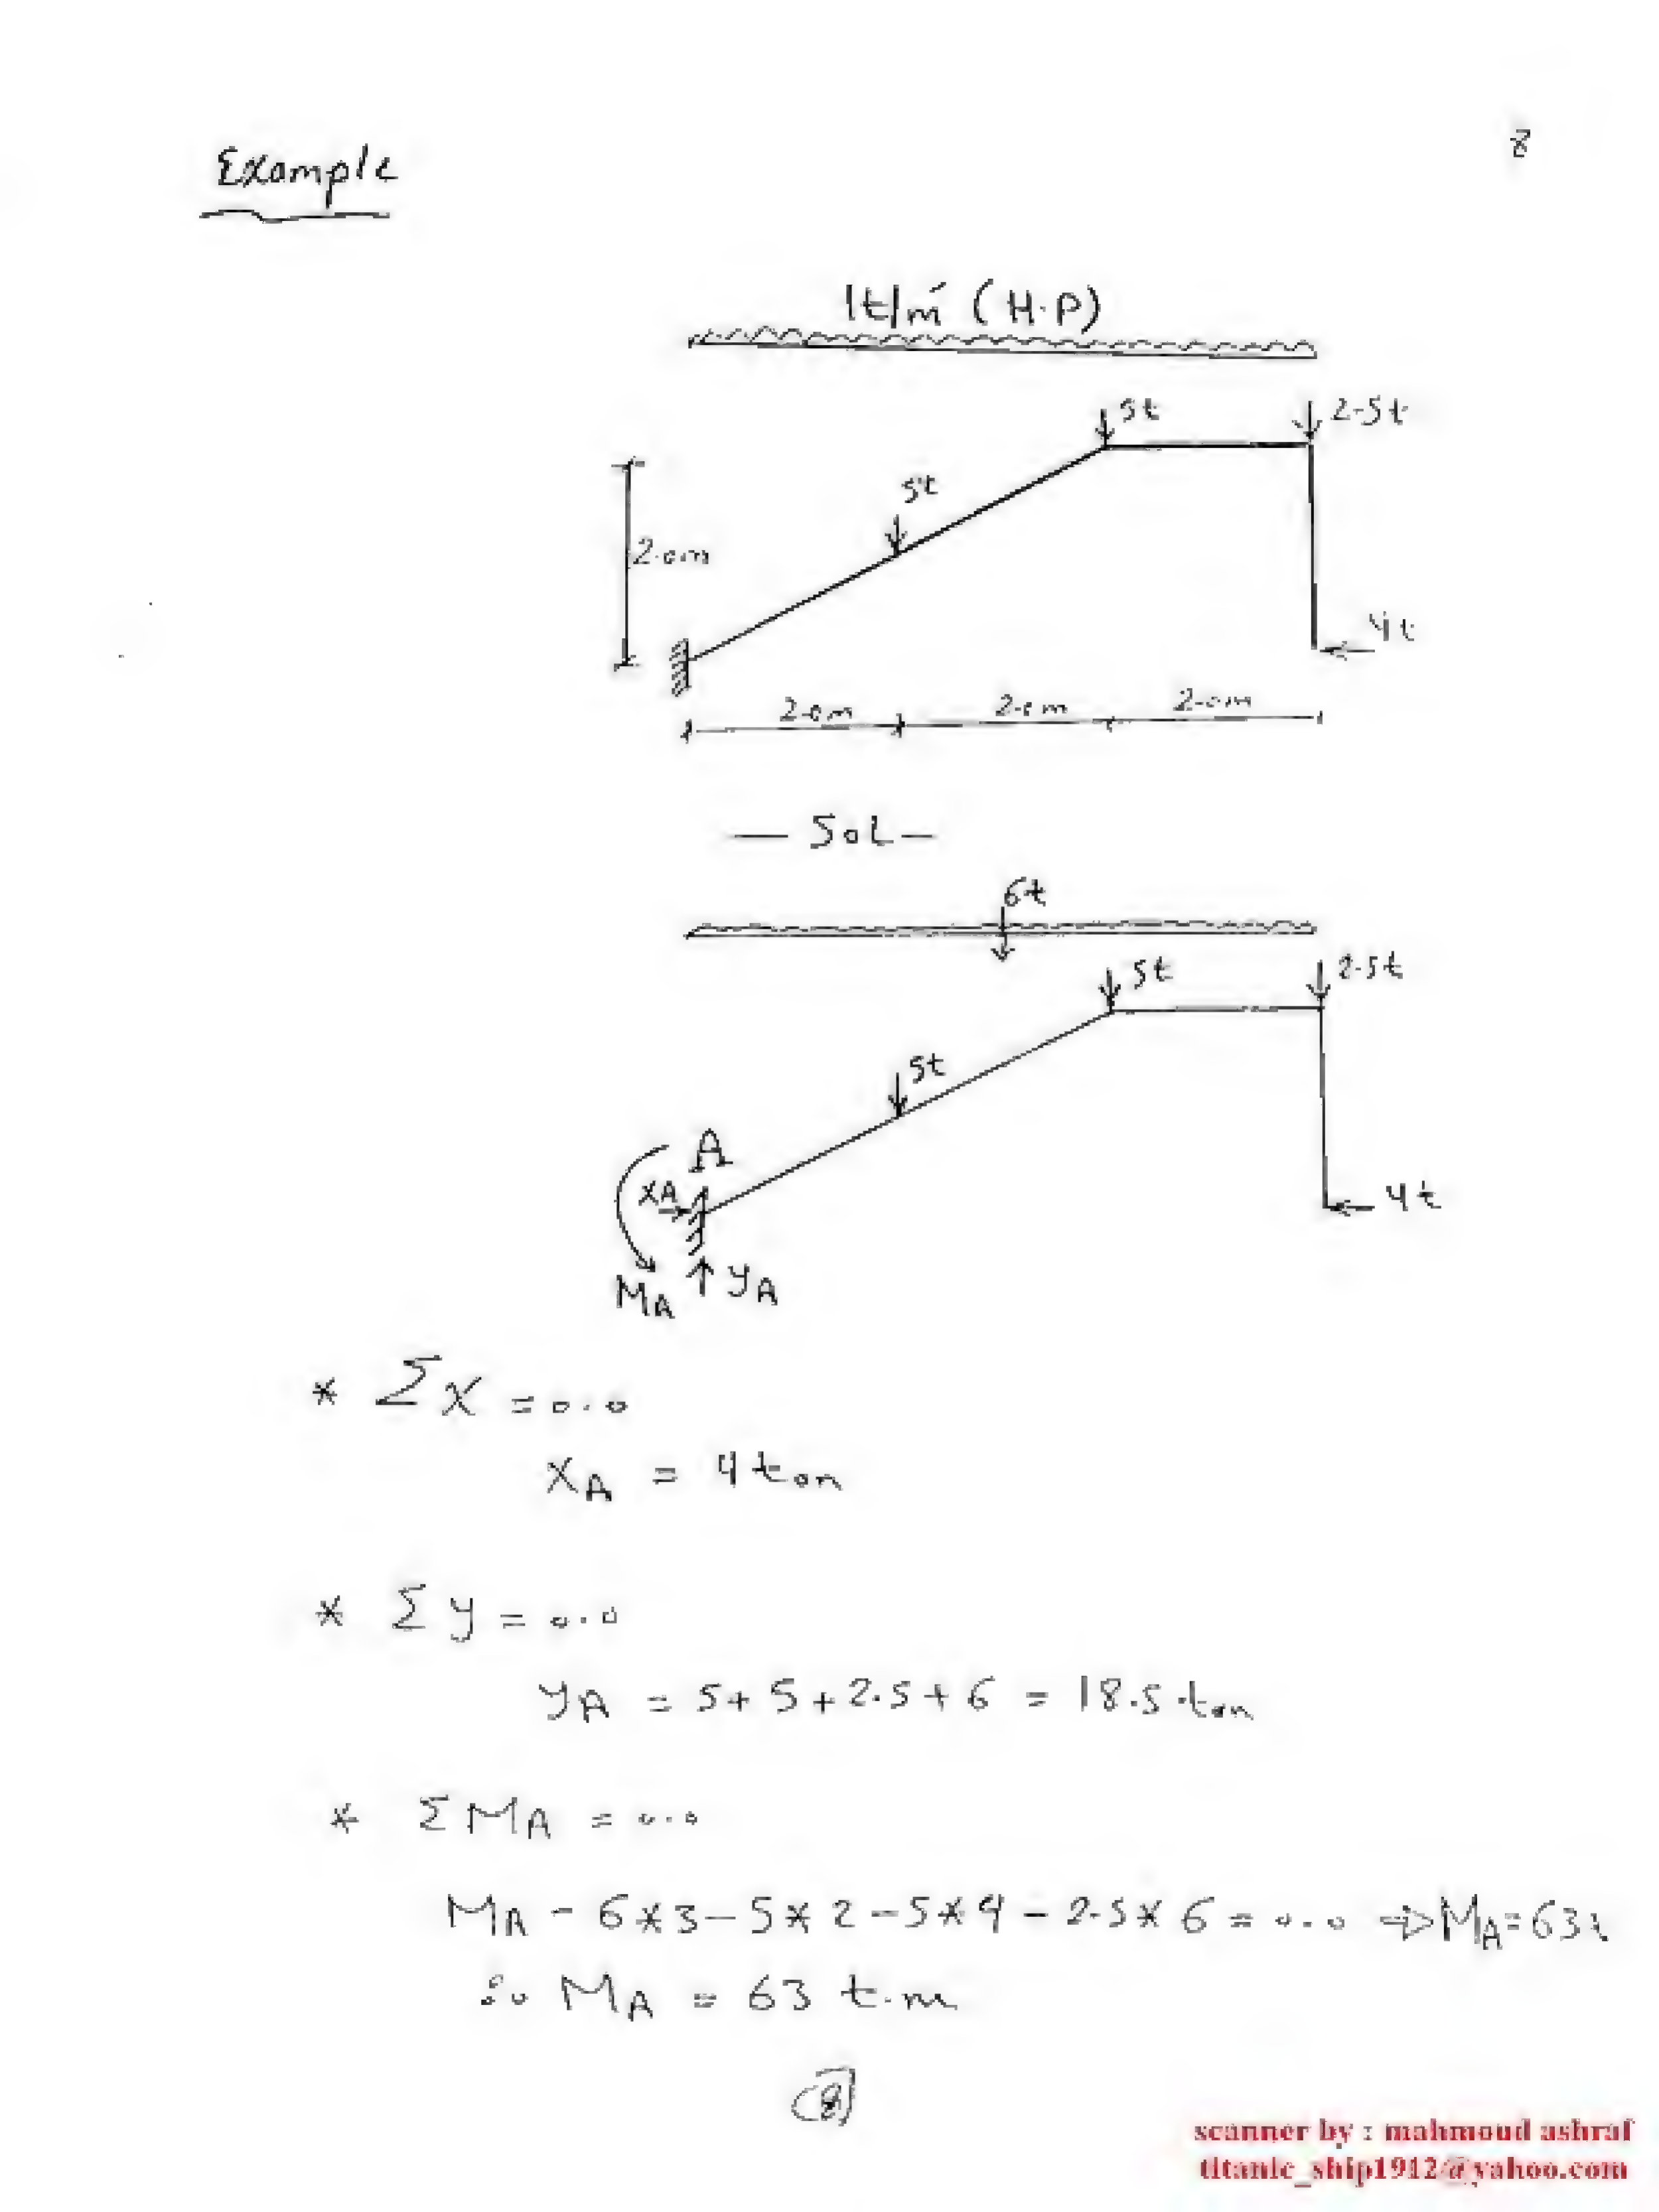 8
Example
1t/m' (H.P)
5t
2.5t
5t
2.0m
4t
2.0m 2.0m 2.0m
— SoL —
6t
5t
2.5t
5t
A
XA
4t
MA
yA
* ΣX = 0.0
XA = 4 ton
* Σy = 0.0
yA = 5 + 5 + 2.5 + 6 = 18.5 ton
* ΣMA = 0.0
MA - 6*3 - 5*2 - 5*4 - 2.5*6 = 0.0 ⇒ MA = 63t
∴ MA = 63 t.m
8
scanner by : mahmoud ashraf
titanic_ship1912@yahoo.com